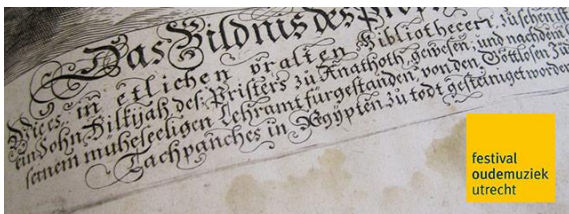 Das Bildnis des Prop
Wiers in etlichen uralten Bibliothecen zusehen ist
ein Sohn Hilkijah des Pristers zu Anathoth gewesen, und nachdem
seinem muheseeligen Lehramt fürgestanden, von den Gottlosen Jüd
Tachpanches in Egÿpten zu todt gesteiniget worden
festival
oudemuziek
utrecht